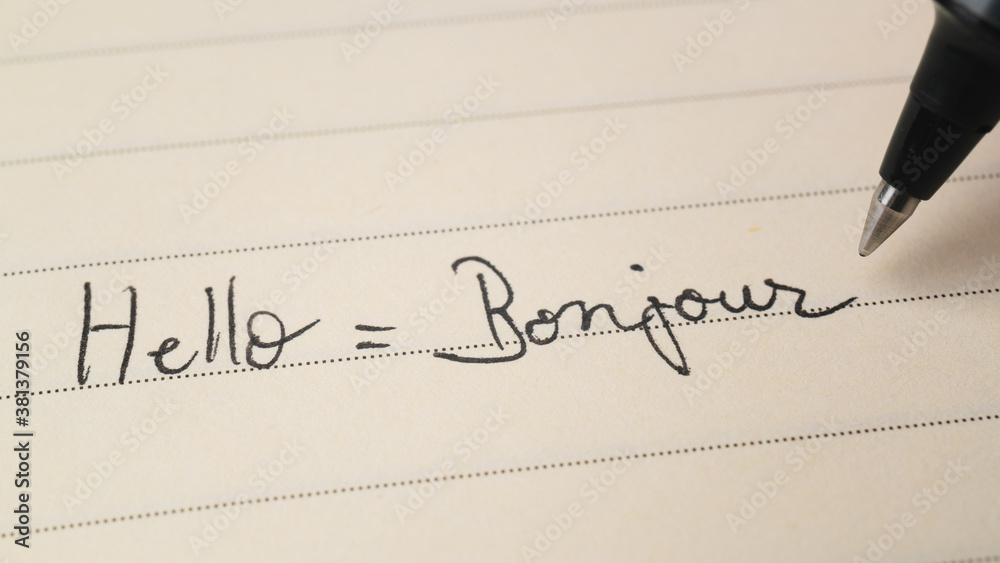 Hello = Bonjour
Adobe Stock | #381379156